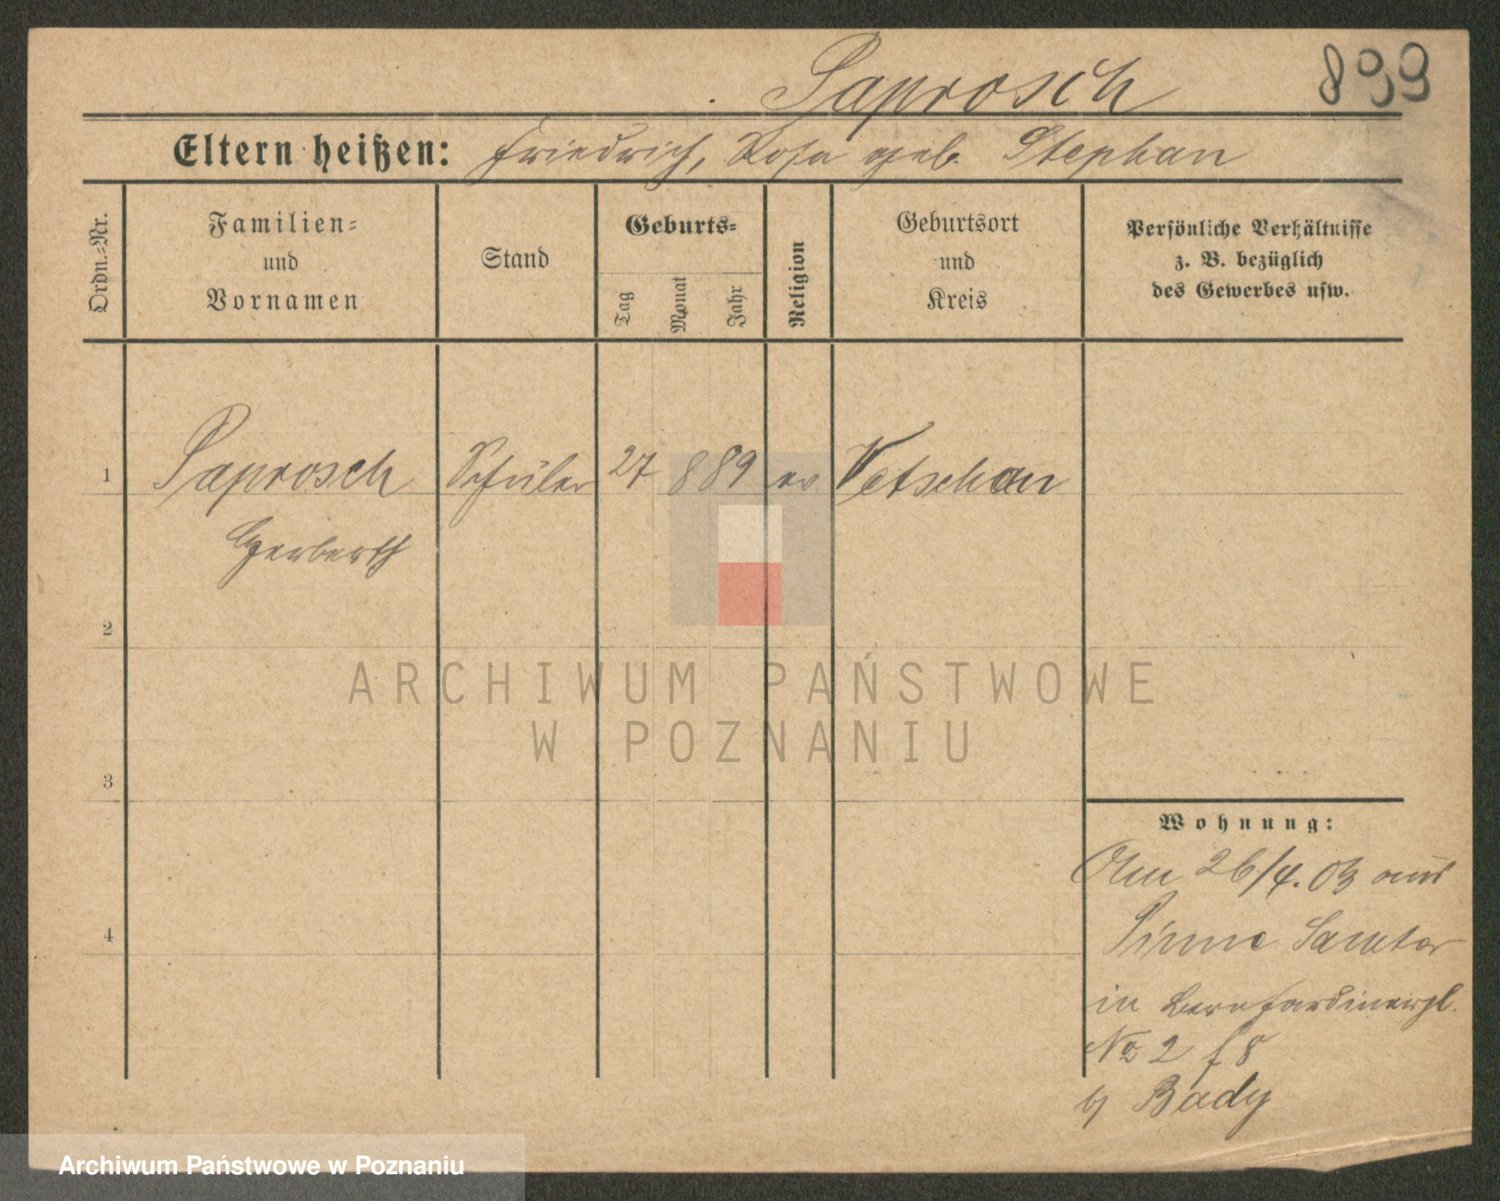 Paprosch 899
Eltern heißen: Friedrich, Rosa geb. Stephan
Ordn.=Nr.
Familien=
und
Vornamen
Stand
Geburts=
Tag
Monat
Jahr
Religion
Geburtsort
und
Kreis
Persönliche Verhältnisse
z. B. bezüglich
des Gewerbes usw.
1 Paprosch Schüler 27 8 89 ev Vetschau
Herberth
2
3
4
Wohnung:
Am 26/4. 03 aus
Pinne Samter
in Bernhardinerpl.
No 2
b/ Bady
ARCHIWUM PAŃSTWOWE
W POZNANIU
Archiwum Państwowe w Poznaniu